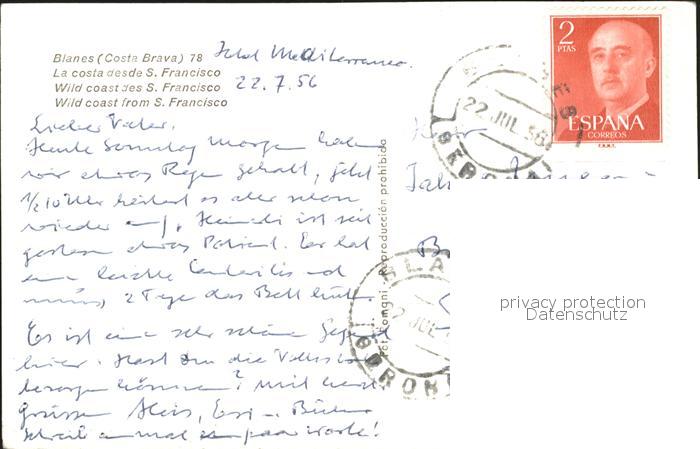 Blanes (Costa Brava) 78
La costa desde S. Francisco
Wild coast des S. Francisco
Wild coast from S. Francisco
Hotel Mediterraneo.
22.7.56
Lieber Vater.
Heute Sonntag Morgen haben
wir etwas Regen gehabt, jetzt
1/2 10 Uhr heitert es aber schon
wieder auf. ist seit
gestern etwas Patient. Er hat
eine leichte und
muss 2 Tage das Bett hüten.
Es ist eine sehr schöne Gegend
hier. Hast Du die
besorgen können? Mit herzl.
grüssen Alois,
Schreib einmal ein paar Worte!
Fot. Romani - Reproducción prohibida
2
PTAS
ESPAÑA
CORREOS
F.N.M.T.
22 JUL 56
BLA
JUL
GERON
Herr
privacy protection
Datenschutz